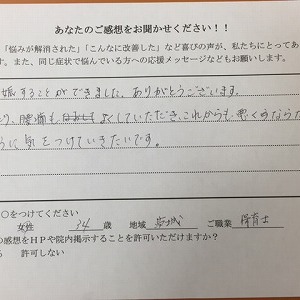 あなたのご感想をお聞かせください！！
「悩みが解消された」「こんなに改善した」など喜びの声が、私たちにとってあ
す。また、同じ症状で悩んでいる方への応援メッセージなどもお願いします。
娠することができました、ありがとうございます。
り、腰痛も よくしていただき、これからも、悪くすならた
うに気をつけていきたいです。
○をつけてください
女性 34 歳 地域 ご職業 保育士
の感想をＨＰや院内掲示することを許可いただけますか？
る 許可しない